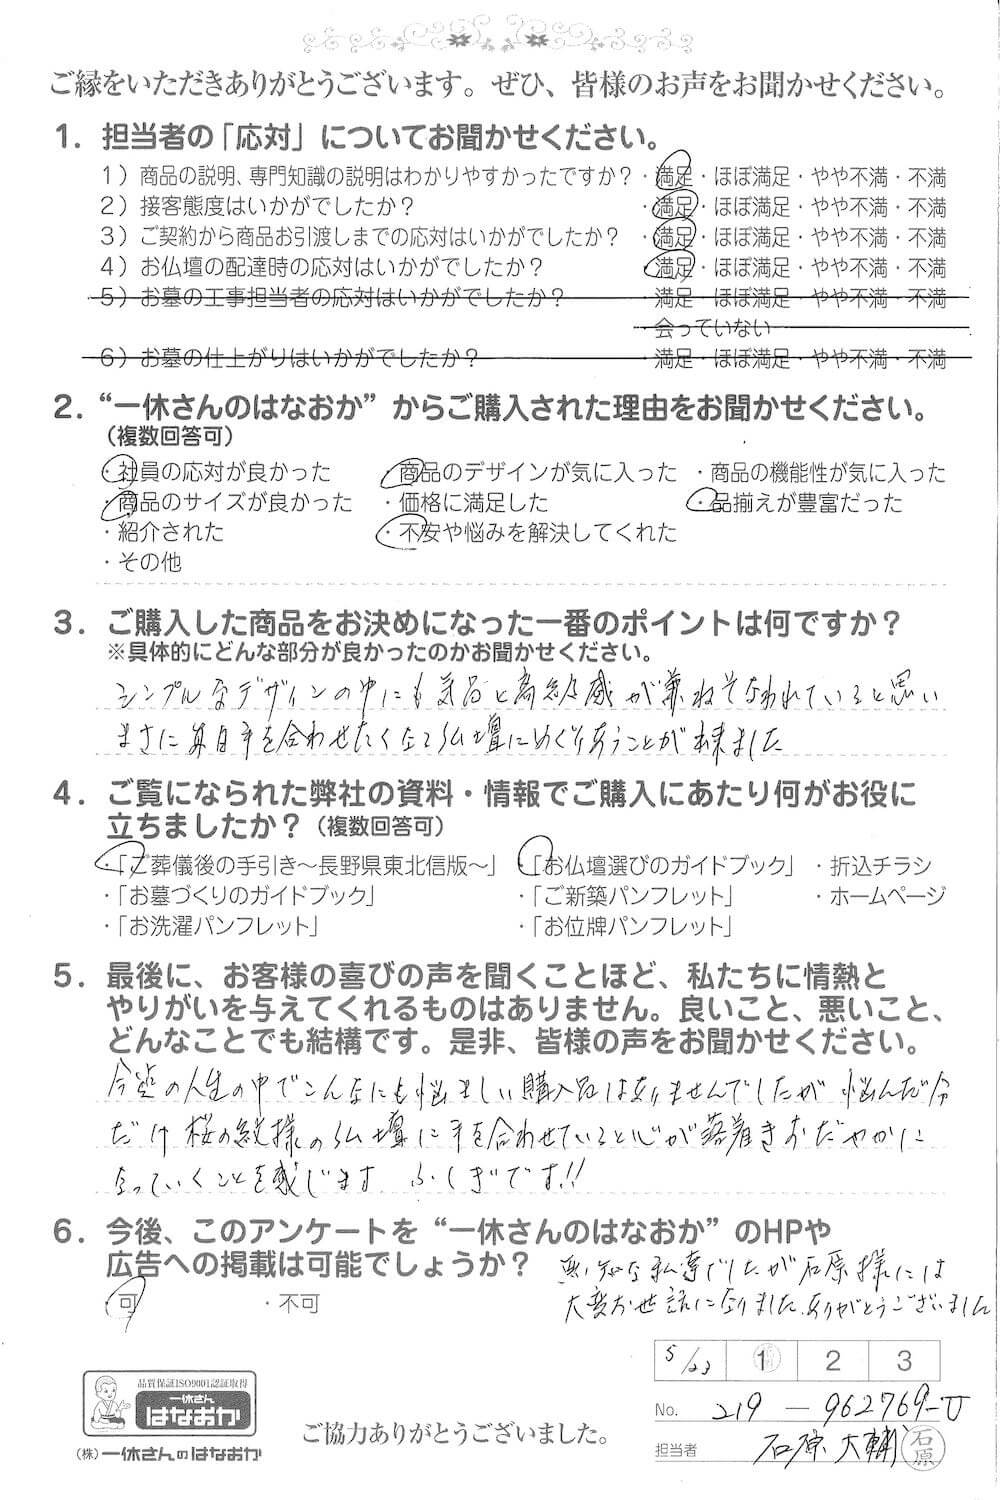 ご縁をいただきありがとうございます。ぜひ、皆様のお声をお聞かせください。
1. 担当者の「応対」についてお聞かせください。
1）商品の説明、専門知識の説明はわかりやすかったですか？ ・満足・ほぼ満足・やや不満・不満
2）接客態度はいかがでしたか？ ・満足・ほぼ満足・やや不満・不満
3）ご契約から商品お引渡しまでの応対はいかがでしたか？ ・満足・ほぼ満足・やや不満・不満
4）お仏壇の配達時の応対はいかがでしたか？ ・満足・ほぼ満足・やや不満・不満
5）お墓の工事担当者の応対はいかがでしたか？ ・満足・ほぼ満足・やや不満・不満
・会っていない
6）お墓の仕上がりはいかがでしたか？ ・満足・ほぼ満足・やや不満・不満
2. “一休さんのはなおか” からご購入された理由をお聞かせください。
（複数回答可）
・社員の応対が良かった ・商品のデザインが気に入った ・商品の機能性が気に入った
・商品のサイズが良かった ・価格に満足した ・品揃えが豊富だった
・紹介された ・不安や悩みを解決してくれた
・その他
3. ご購入した商品をお決めになった一番のポイントは何ですか？
※具体的にどんな部分が良かったのかお聞かせください。
シンプルなデザインの中にも気品と高級感が兼ねそなわれていると思い
まさに毎日手を合わせたくなる仏壇にめぐりあうことが出来ました
4. ご覧になられた弊社の資料・情報でご購入にあたり何がお役に
立ちましたか？（複数回答可）
・「ご葬儀後の手引き～長野県東北信版～」 ・「お仏壇選びのガイドブック」 ・折込チラシ
・「お墓づくりのガイドブック」 ・「ご新築パンフレット」 ・ホームページ
・「お洗濯パンフレット」 ・「お位牌パンフレット」
5. 最後に、お客様の喜びの声を聞くことほど、私たちに情熱と
やりがいを与えてくれるものはありません。良いこと、悪いこと、
どんなことでも結構です。是非、皆様の声をお聞かせください。
今迄の人生の中でこんなにも悩ましい購入品はありませんでしたが 悩んだ分
だけ 桜の紋様の仏壇に手を合わせていると心が落着きおだやかに
なっていくことを感じます ふしぎです!!
6. 今後、このアンケートを “一休さんのはなおか” のHPや
広告への掲載は可能でしょうか？
・可 ・不可
無知な私達でしたが石原様には
大変お世話になりました。ありがとうございました
5/23 1 2 3
No. 219 － 962769-U
担当者 石原 大輔 石原
品質保証ISO9001認証取得
一休さん
はなおか
（株）一休さんのはなおか
ご協力ありがとうございました。